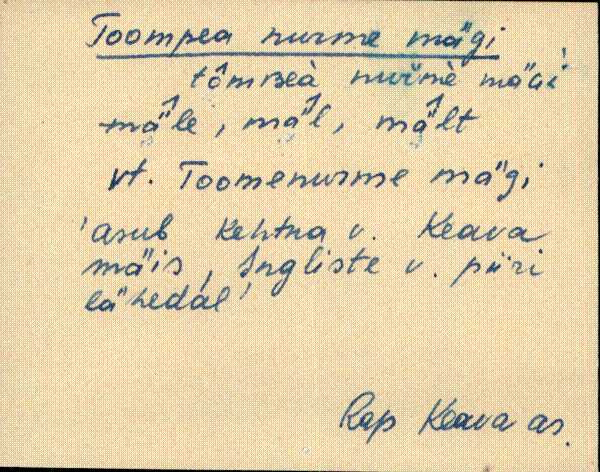 Toompea nurme mägi
tômʙeà nuřmè mäGi
-mä̂le, mä̂l, mä̂lt
vt. Toomenurme mägi
'asub Kehtna v. Keava
mäis, Ingliste v. piiri
lähedal'
Rap Keava as.